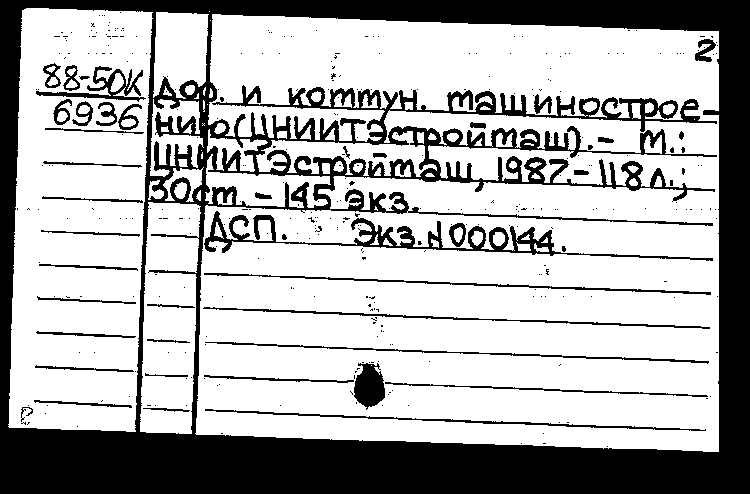 2.
88-50К дор. и коммун. машинострое-
6936 нию (ЦНИИТЭстроймаш). – М.:
ЦНИИТЭстроймаш, 1987. – 118 л.;
30 см. – 145 экз.
ДСП. Экз. N 000144.